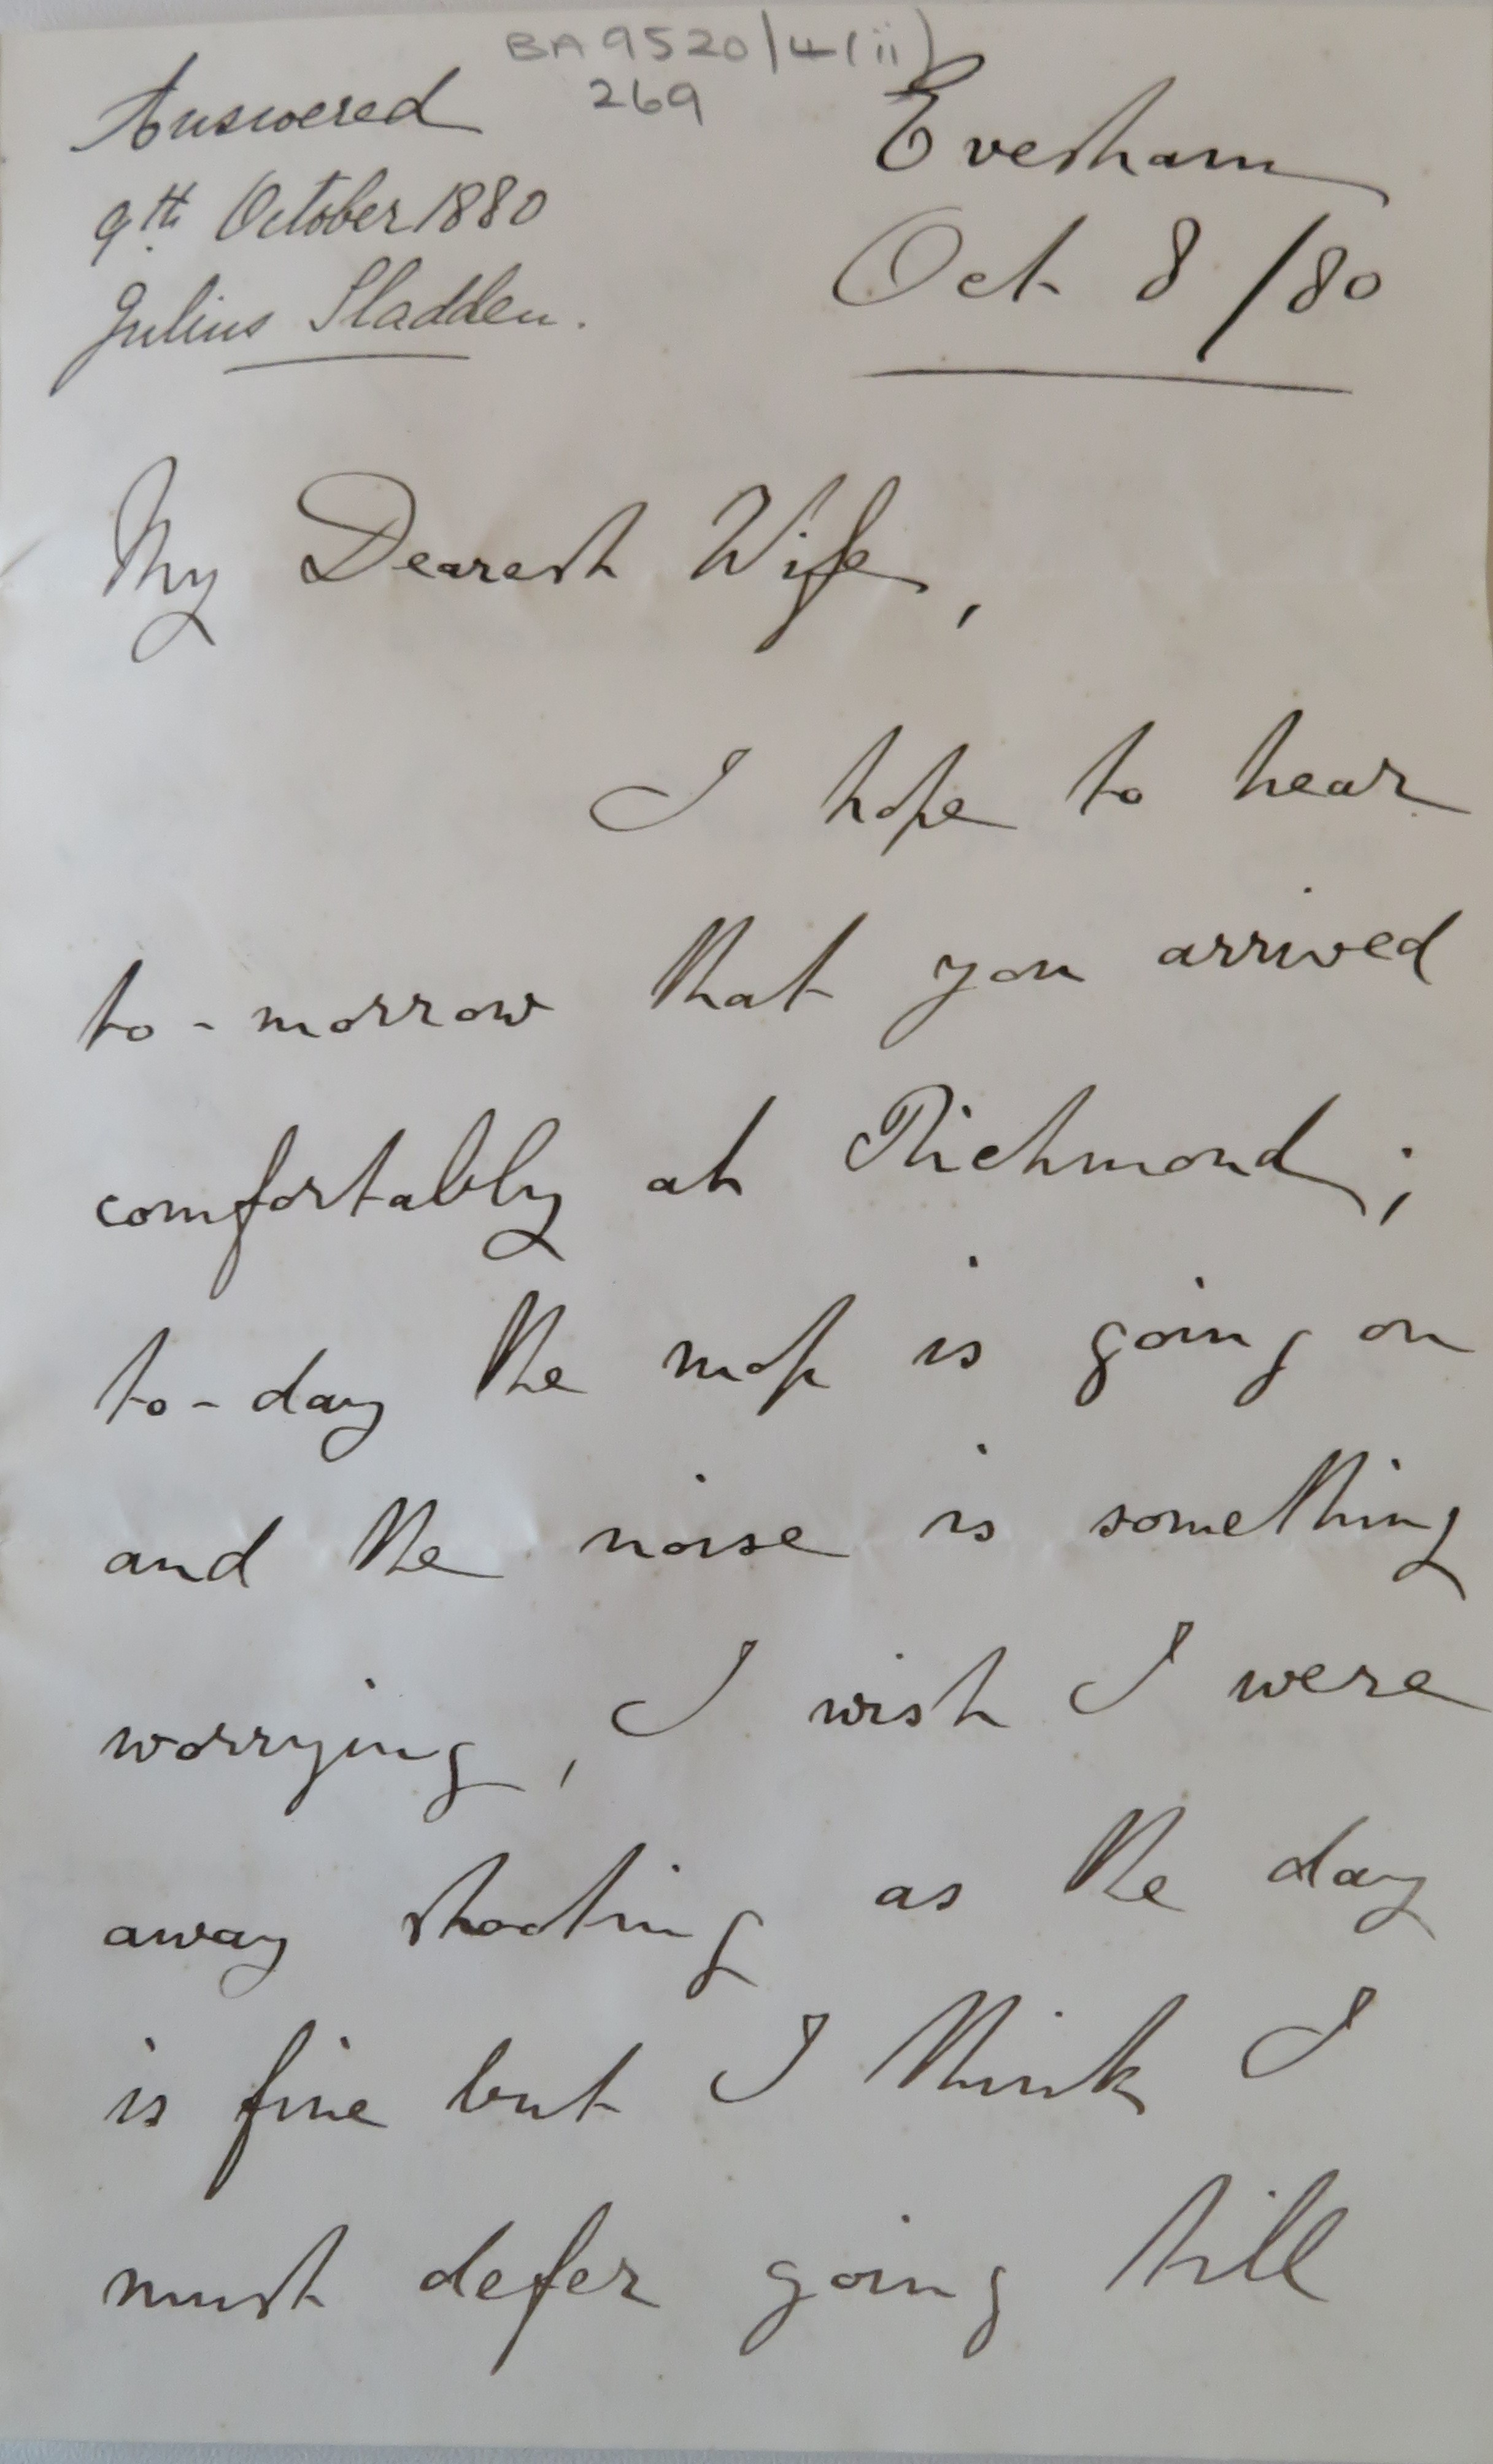 BA 9520/4(ii)
269
Answered
9th October 1880
Julius Sladden.
Evesham
Oct 8/80
My Dearest Wife,
I hope to hear
to-morrow that you arrived
comfortably at Richmond;
to-day the mop is going on
and the noise is something
worrying, I wish I were
away shooting as the day
is fine but I think I
must defer going till